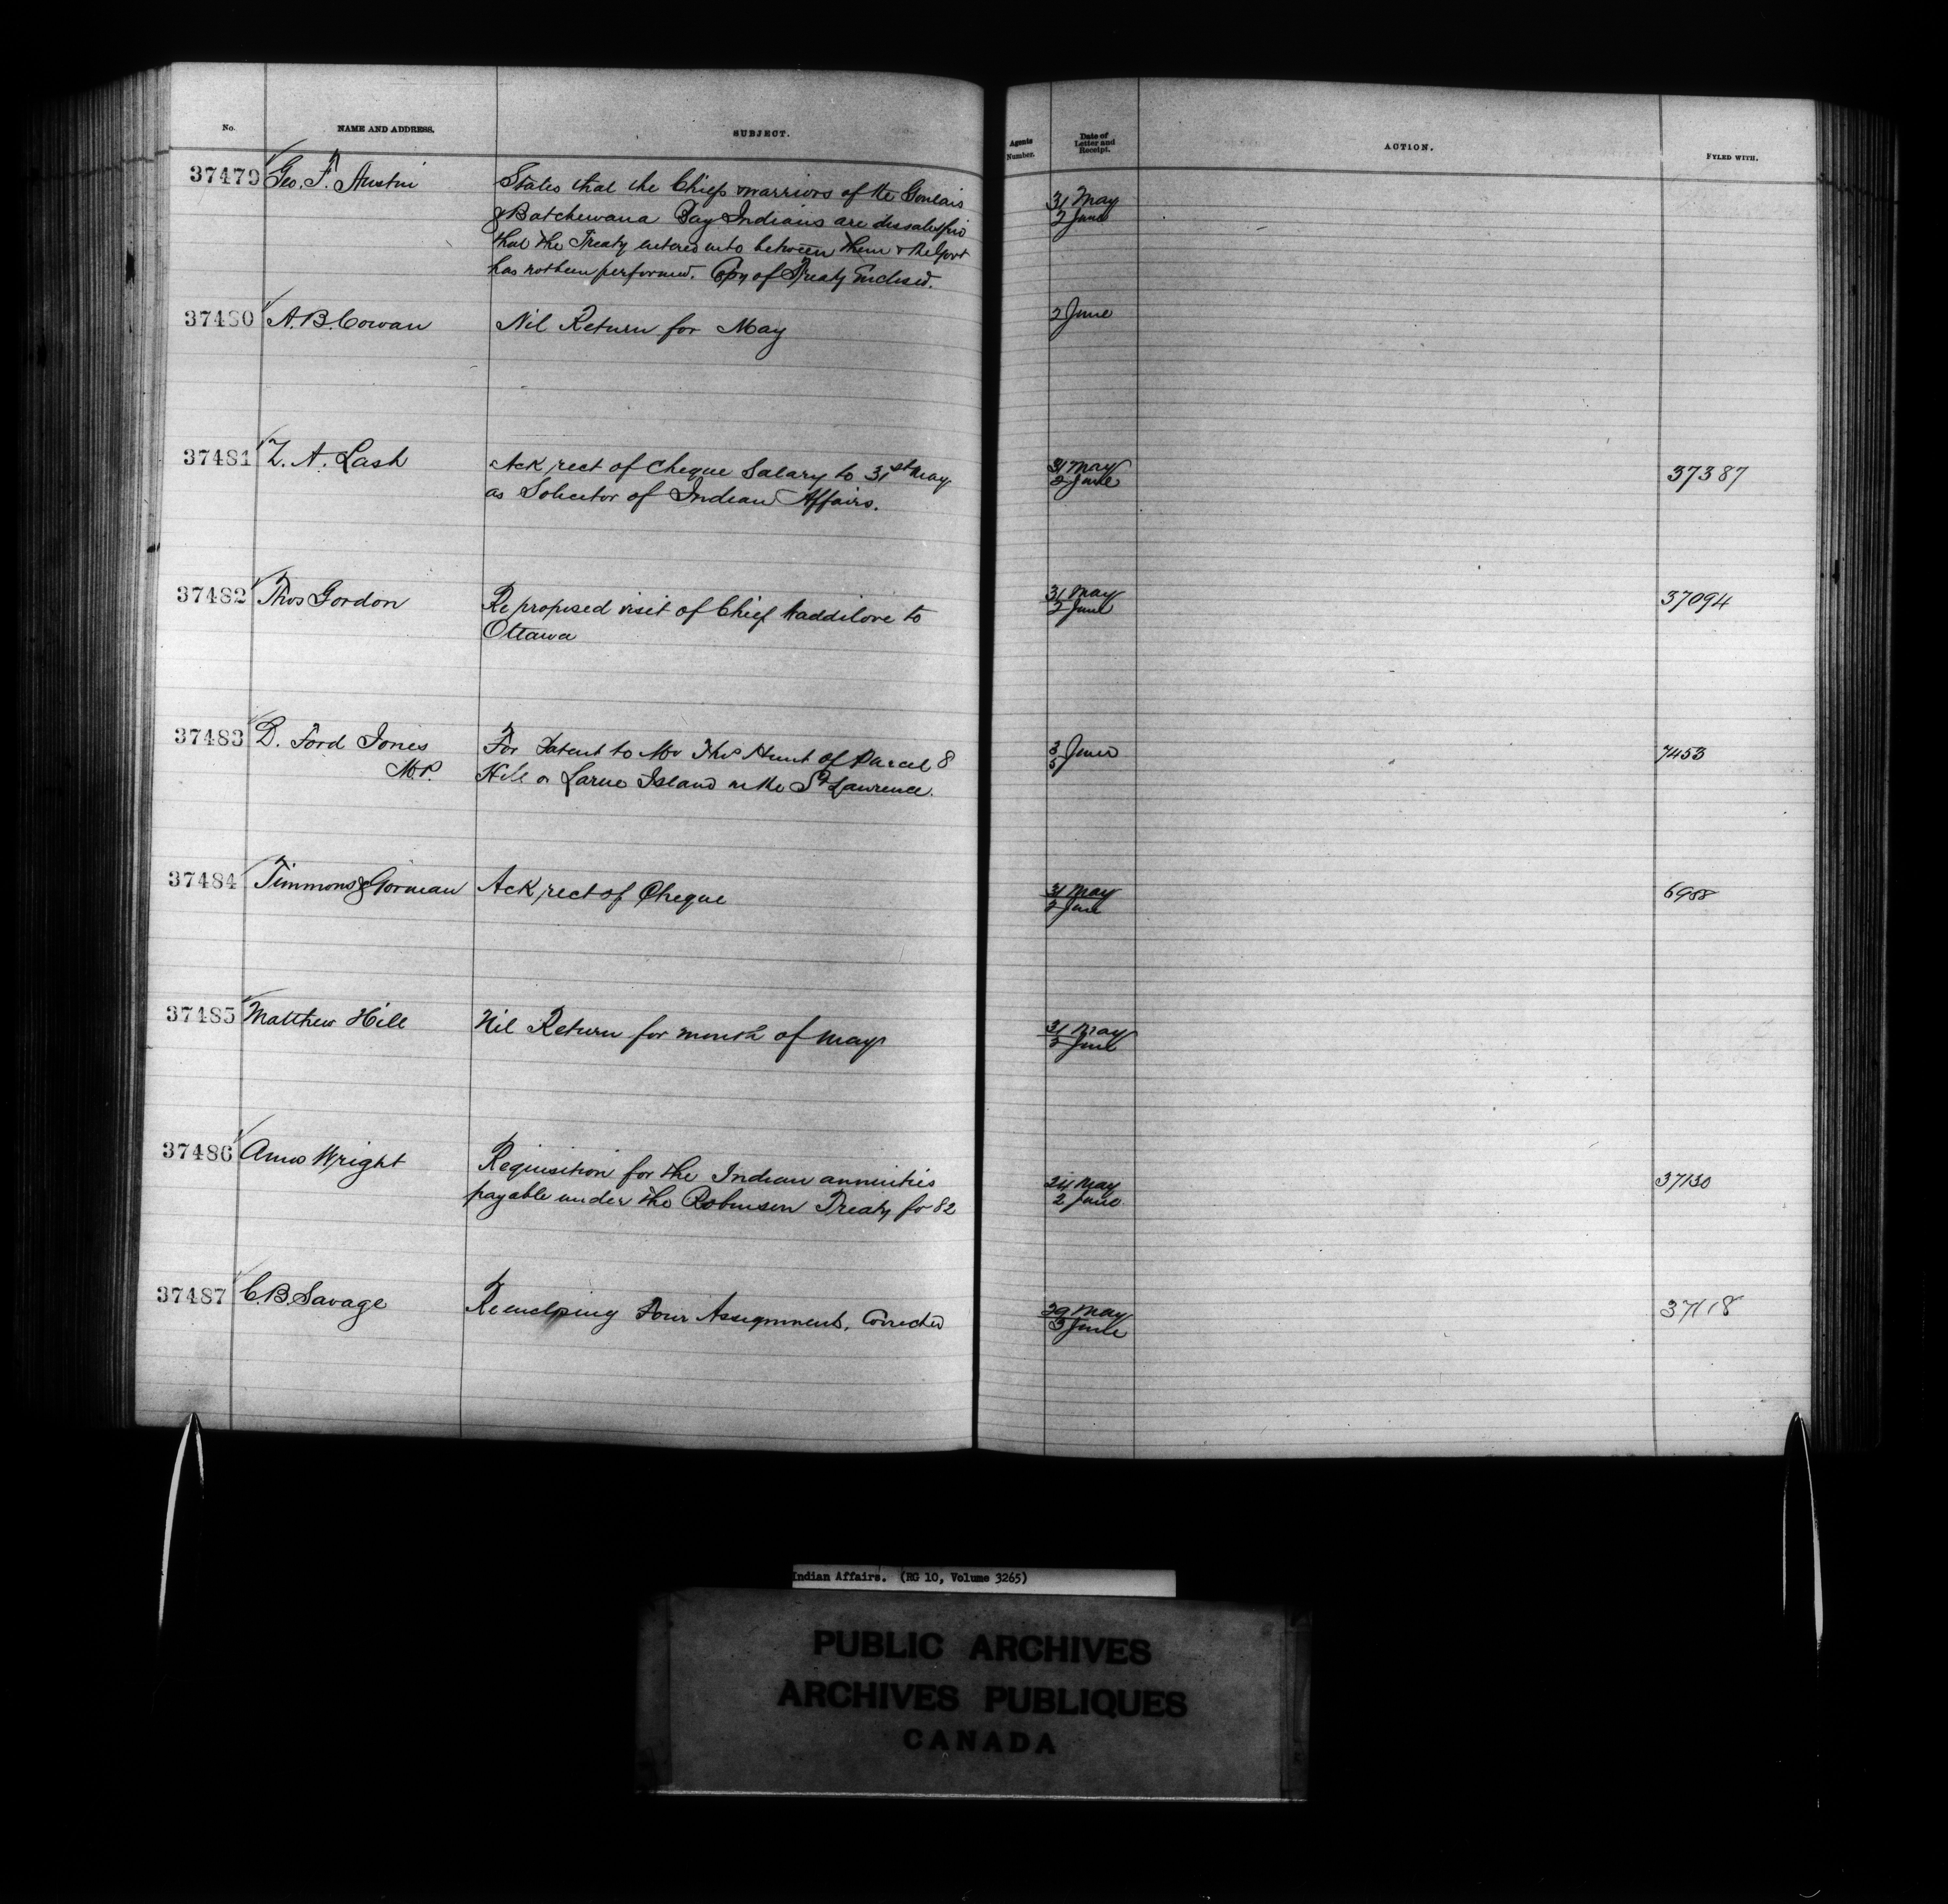 No. NAME AND ADDRESS. SUBJECT. Agents Number. Date of Letter and Receipt. ACTION. FYLED WITH.
37479 Geo. F. Austin States that the Chiefs & warriors of the Goulais 31 May
& Batchewana Bay Indians are dissatisfied 2 June
that the Treaty entered into between them & the Govt
has not been performed. Copy of Treaty Enclosed.
37480 A. B. Cowan Nil Return for May 2 June
37481 Z. A. Lash Ack rect of Cheque Salary to 31st May 31 May 37387
as Solicitor of Indian Affairs. 2 June
37482 Thos Gordon Re proposed visit of Chief Waddilove to 31 May 37094
Ottawa 2 June
37483 D. Ford Jones For Patent to Mr Thos Hunt of Parcel 8 3 June 7453
M.P. Hill or Larue Island in the St Lawrence. 5
37484 Timmons & Gorman Ack rect of Cheque 31 May 6988
2 June
37485 Matthew Hill Nil Return for month of May 31 May
2 June
37486 Amos Wright Requisition for the Indian annuities 24 May 37130
payable under the Robinson Treaty for 82 2 June
37487 C. B. Savage Re enclosing Four Assignments, Corrected 29 May 37118
3 June
Indian Affairs. (RG 10, Volume 3265)
PUBLIC ARCHIVES
ARCHIVES PUBLIQUES
CANADA